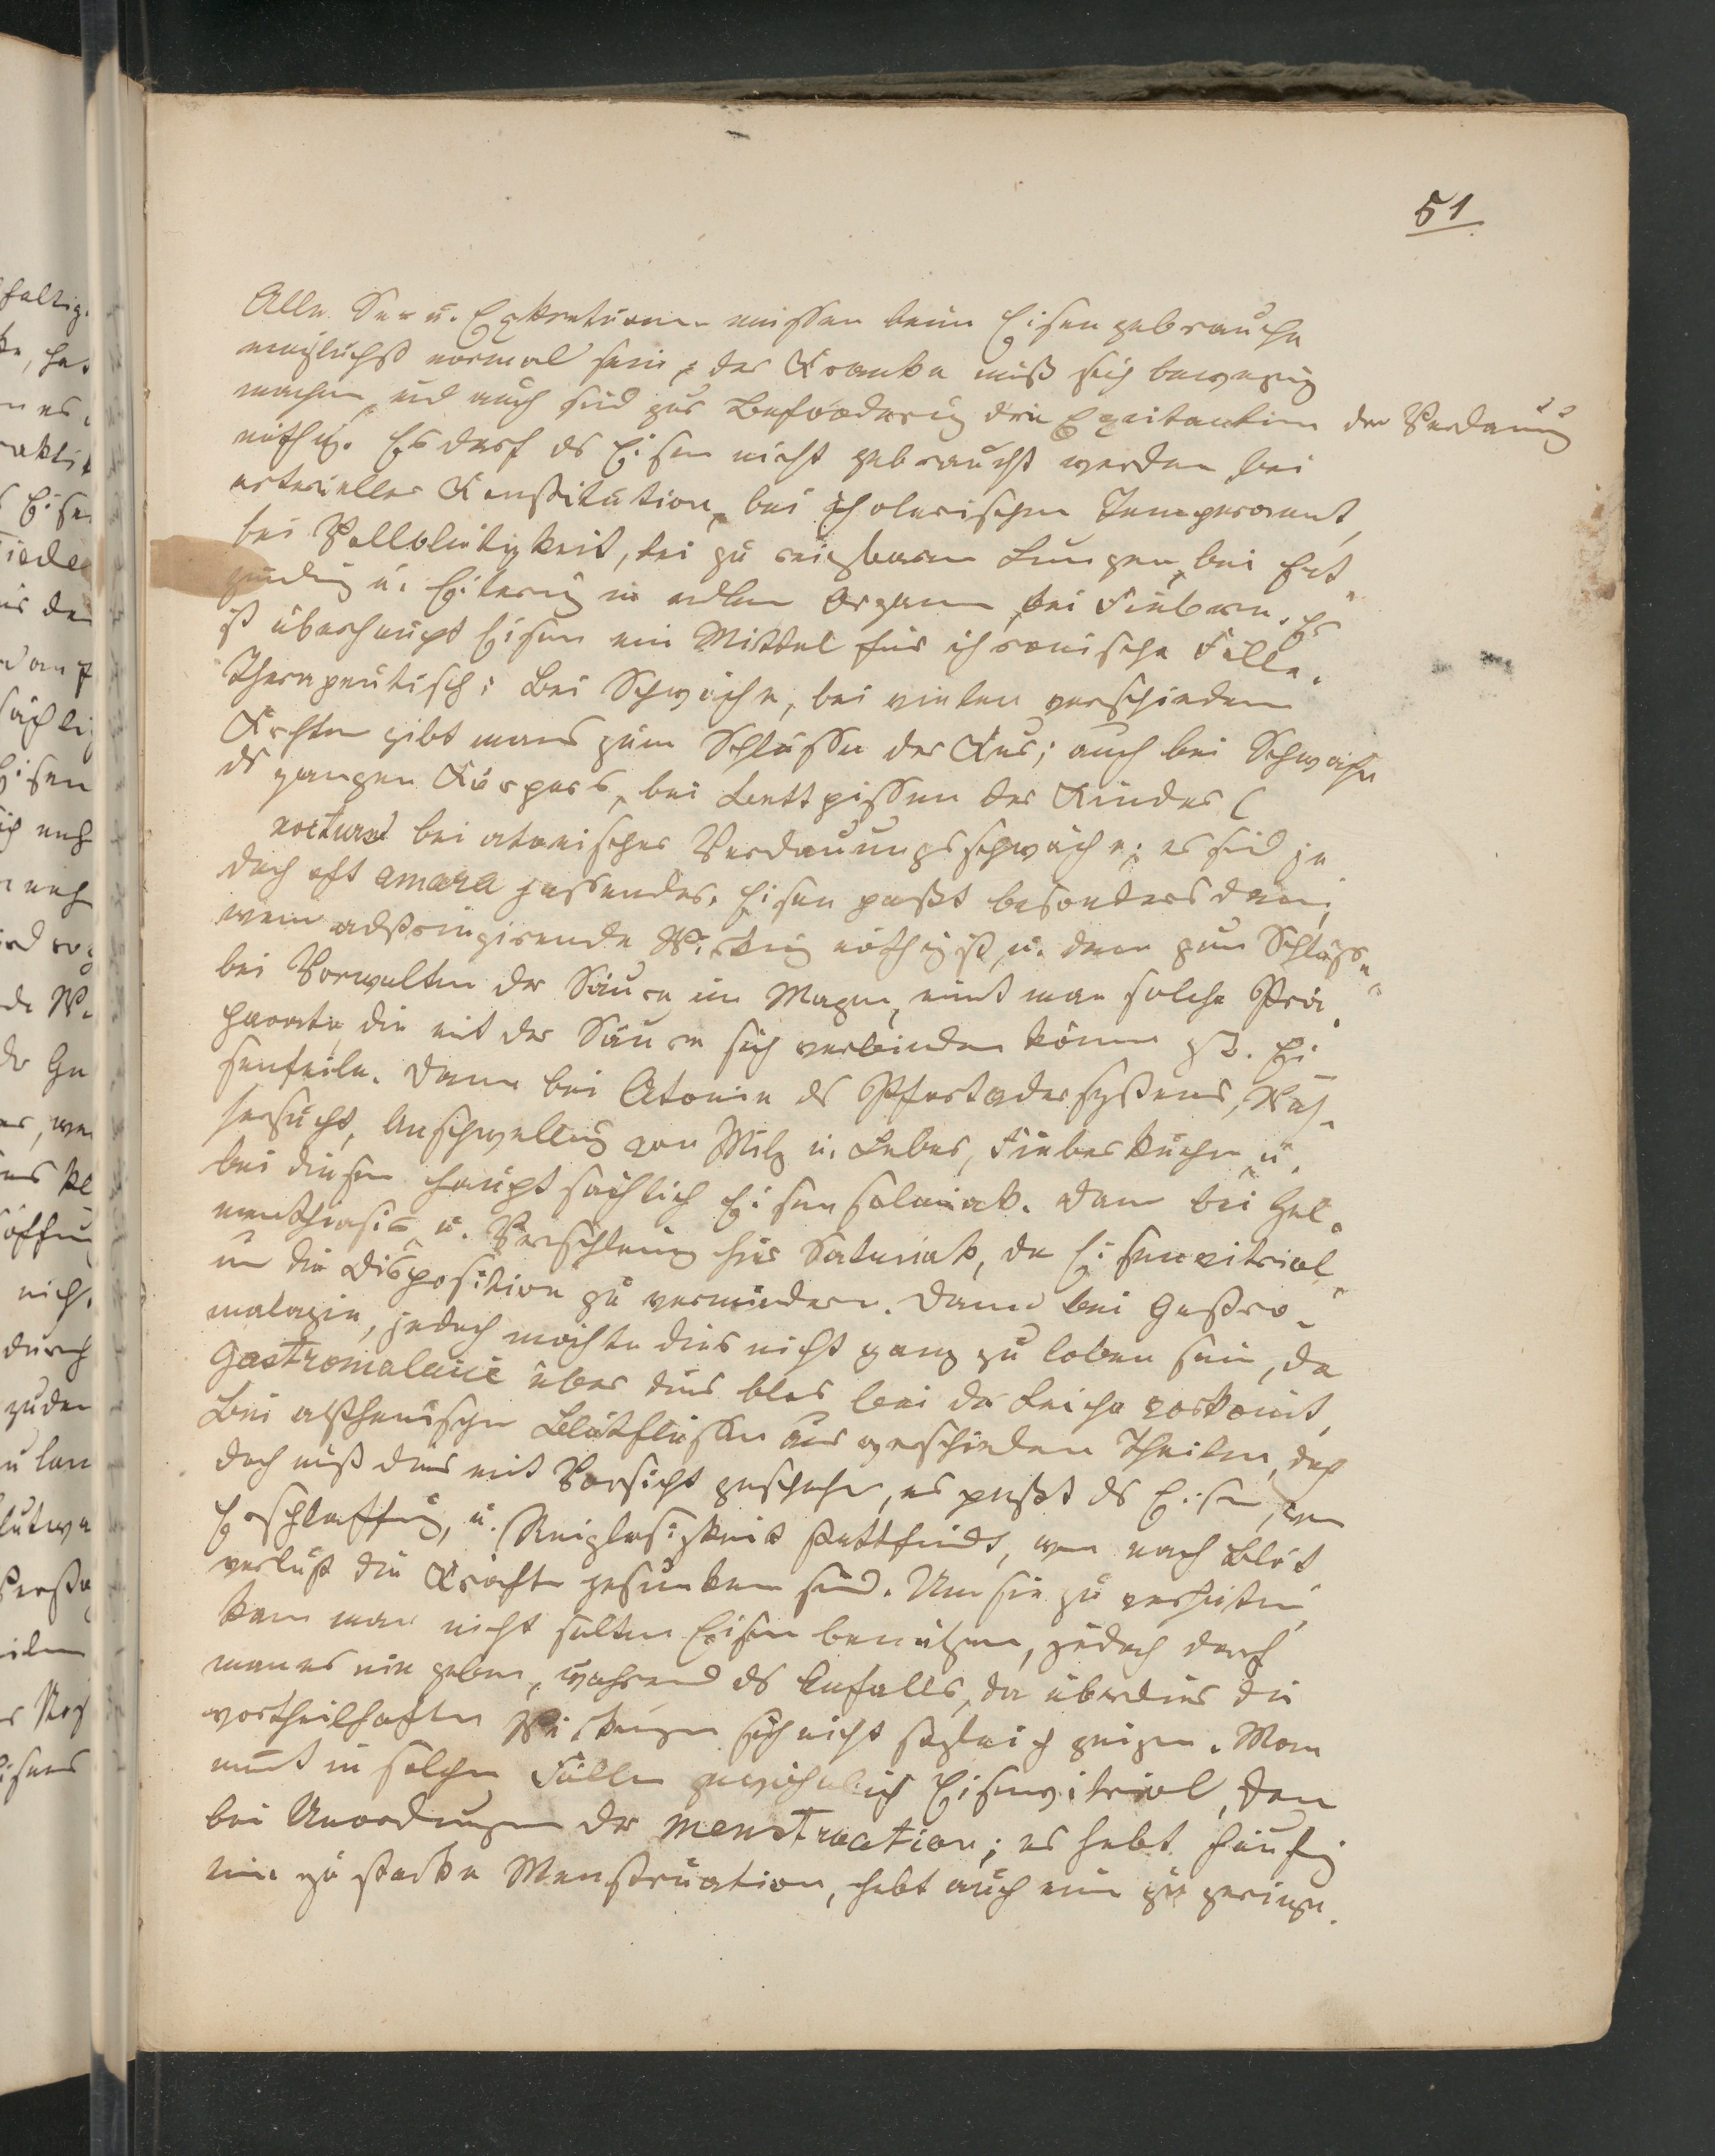 51
Alle Se= u. Exkretionen müssen beim Eisengebrauche
möglichst normal sein, der Kranke muß sich Bewegung
machen, und auch sind zur Beförderung die Excitantien der Verdauung
nöthig. Es darf ds Eisen nicht gebraucht werden bei
arterieller Konstitution, bei cholerischem Temperament,
bei Vollblütigkeit, bei zu reizbaren Lungen, bei Ent„
zündung u. Eiterung in edlen Organen, bei Fiebern. Es
ist überhaupt Eisen ein Mittel für chronische Fälle.
Therapeutisch: Bei Schwäche, bei vielen verschiedenen
gibt mans zum Schlusse der Kur; auch bei Schwäche
ds ganzen Körpers, bei Bettpissen der Kinder (
nocturna) bei atonischer Verdauungsschwäche; es sind je
doch oft amara passender. Eisen paßt besonders dann,
wenn adstringirende Wirkung nöthig ist, u. dann zum Schluss„
bei Vorwalten der Säure im Magen, nimt man solche Prä„
parate, die mit der Säure sich verbinden können zB. Ei
senfeile. Dann bei Atonie ds Pfortadersystems, Was„
sersucht, Anschwellung von Milz u. Leber, Fieberkuchen u.
bei diesen hauptsächlich Eisensalmiak. Dann bei Hel„
minthiasis u. Verschleimung hier Salmiak, da Eisenvitriol„
um die Disposition zu vermindern. Dann bei Gastro„
malazie, jedoch möchte dies nicht ganz zu loben sein, da
Gastromalacie über dies blos bei der Leiche vorkomt,
Bei asthenischen Blutflüssen aus verschiedenen Theilen, doch
doch muß dies mit Vorsicht geschehen, es paßt ds Eisen, wenn
Erschlaffung, u. Reizlosigkeit stattfindet, wenn nach Blut
verlust die Kräfte gesunken sind. Um sie zu verhüten,
kann man nicht selten Eisen benützen, jedoch darf
man es nie geben, während ds Anfalls, da überdies die
vortheilhaften Wirkungen sich nicht sogleich zeigen. Man
nimt in solchen Fällen gewöhnlich Eisenvitriol, dann
bei Unordnungen der Menstruation; es hebt häufig
eine zu starke Menstruation, hebt auch eine zu geringe.